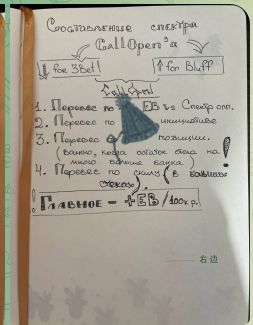 Составление спектра
Call Open'a
↓ for 3Bet
↑ for Bluff
Call Open
1. Перевес по EB vs Спектр опп.
2. Перевес по инициативе
3. Перевес позиции.
(важно, когда остаток стека на
много больше банка)
4. Перевес по скилу (в больших
стеках).
! Главное - +EB/100к р.
右边